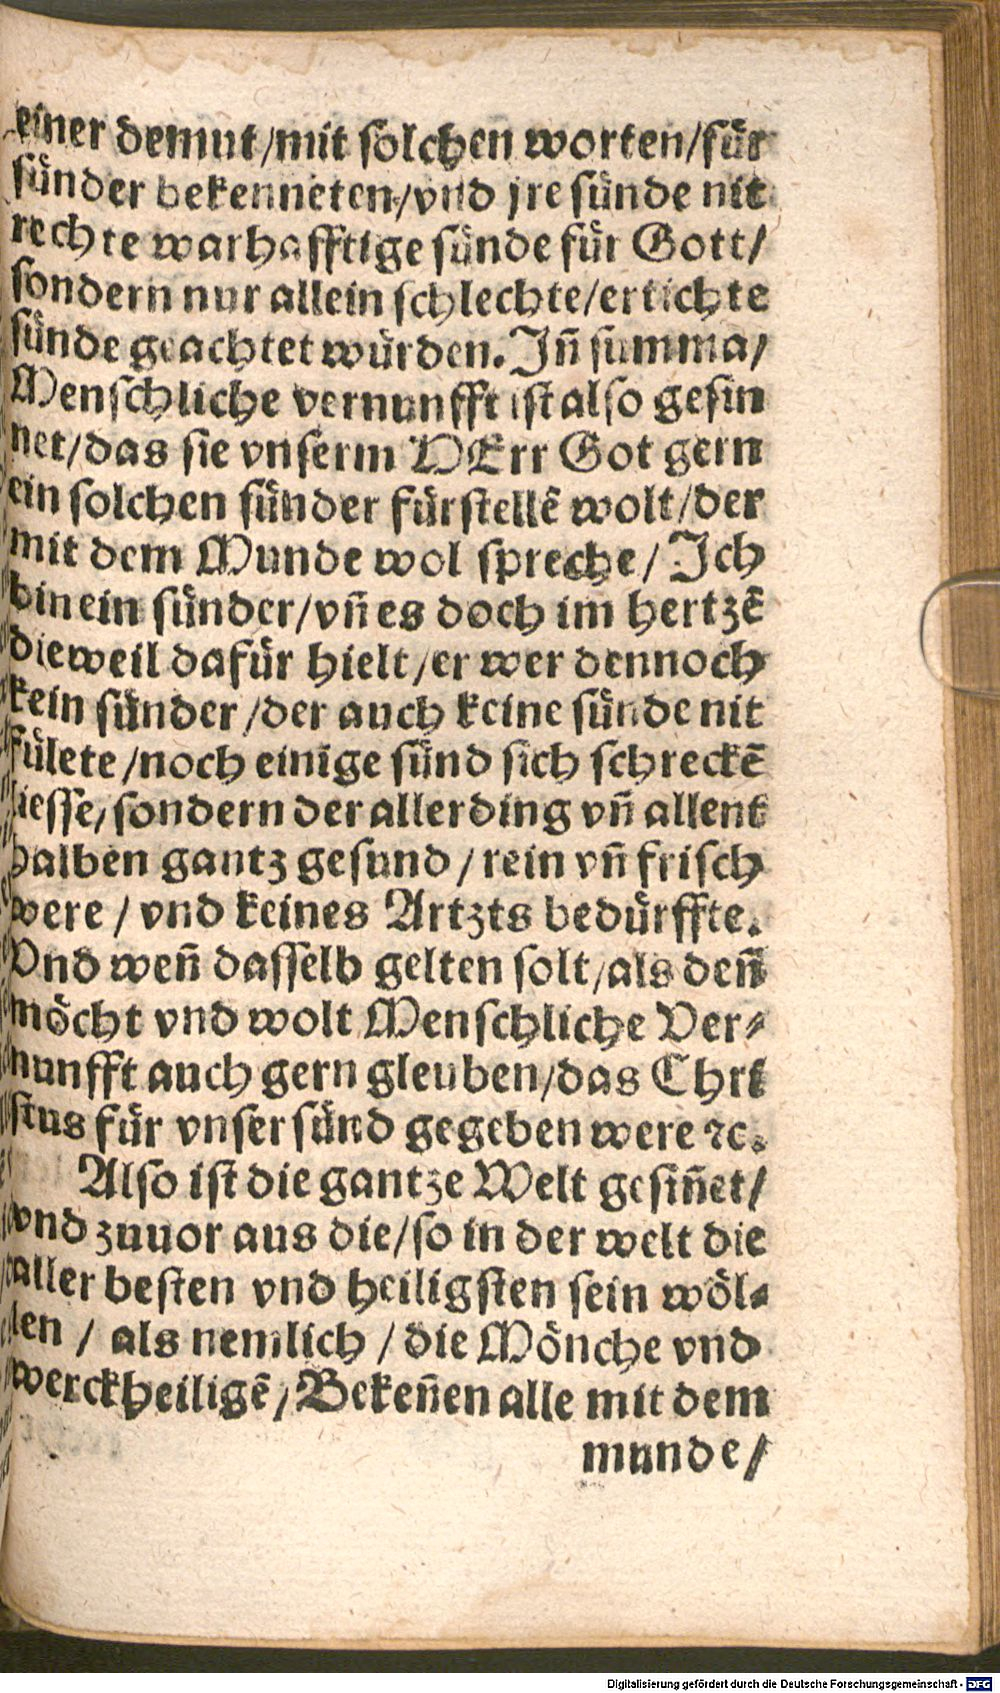 einer demut/mit solchen worten/für
sünder bekenneten/vnd jre sünde nit
rechte warhafftige sünde für Gott/
sondern nur allein schlechte/ertichte
sünde geachtet würden. Jn̄ summa/
Menschliche vernunfft ist also gesin
net/das sie vnserm HErr Got gern
ein solchen sünder fürstellē wolt/der
mit dem Munde wol spreche/ Jch
bin ein sünder/vn̄ es doch im hertzē
dieweil dafür hielt/er wer dennoch
kein sünder/der auch keine sünde nit
fülete/noch einige sünd sich schreckē
liesse/sondern der allerding vn̄ allent
halben gantz gesund/rein vn̄ frisch
were/vnd keines Artzts bedürffte.
Vnd wen̄ dasselb gelten solt/als den̄
möcht vnd wolt Menschliche Ver-
nunfft auch gern gleuben/das Chri
stus für vnser sünd gegeben were ꝛc.
Also ist die gantze Welt gesin̄et/
vnd zuuor aus die/so in der welt die
aller besten vnd heiligsten sein wöl-
len/als nemlich/die Mönche vnd
werckheiligē/Beken̄en alle mit dem
munde/
Digitalisierung gefördert durch die Deutsche Forschungsgemeinschaft - DFG